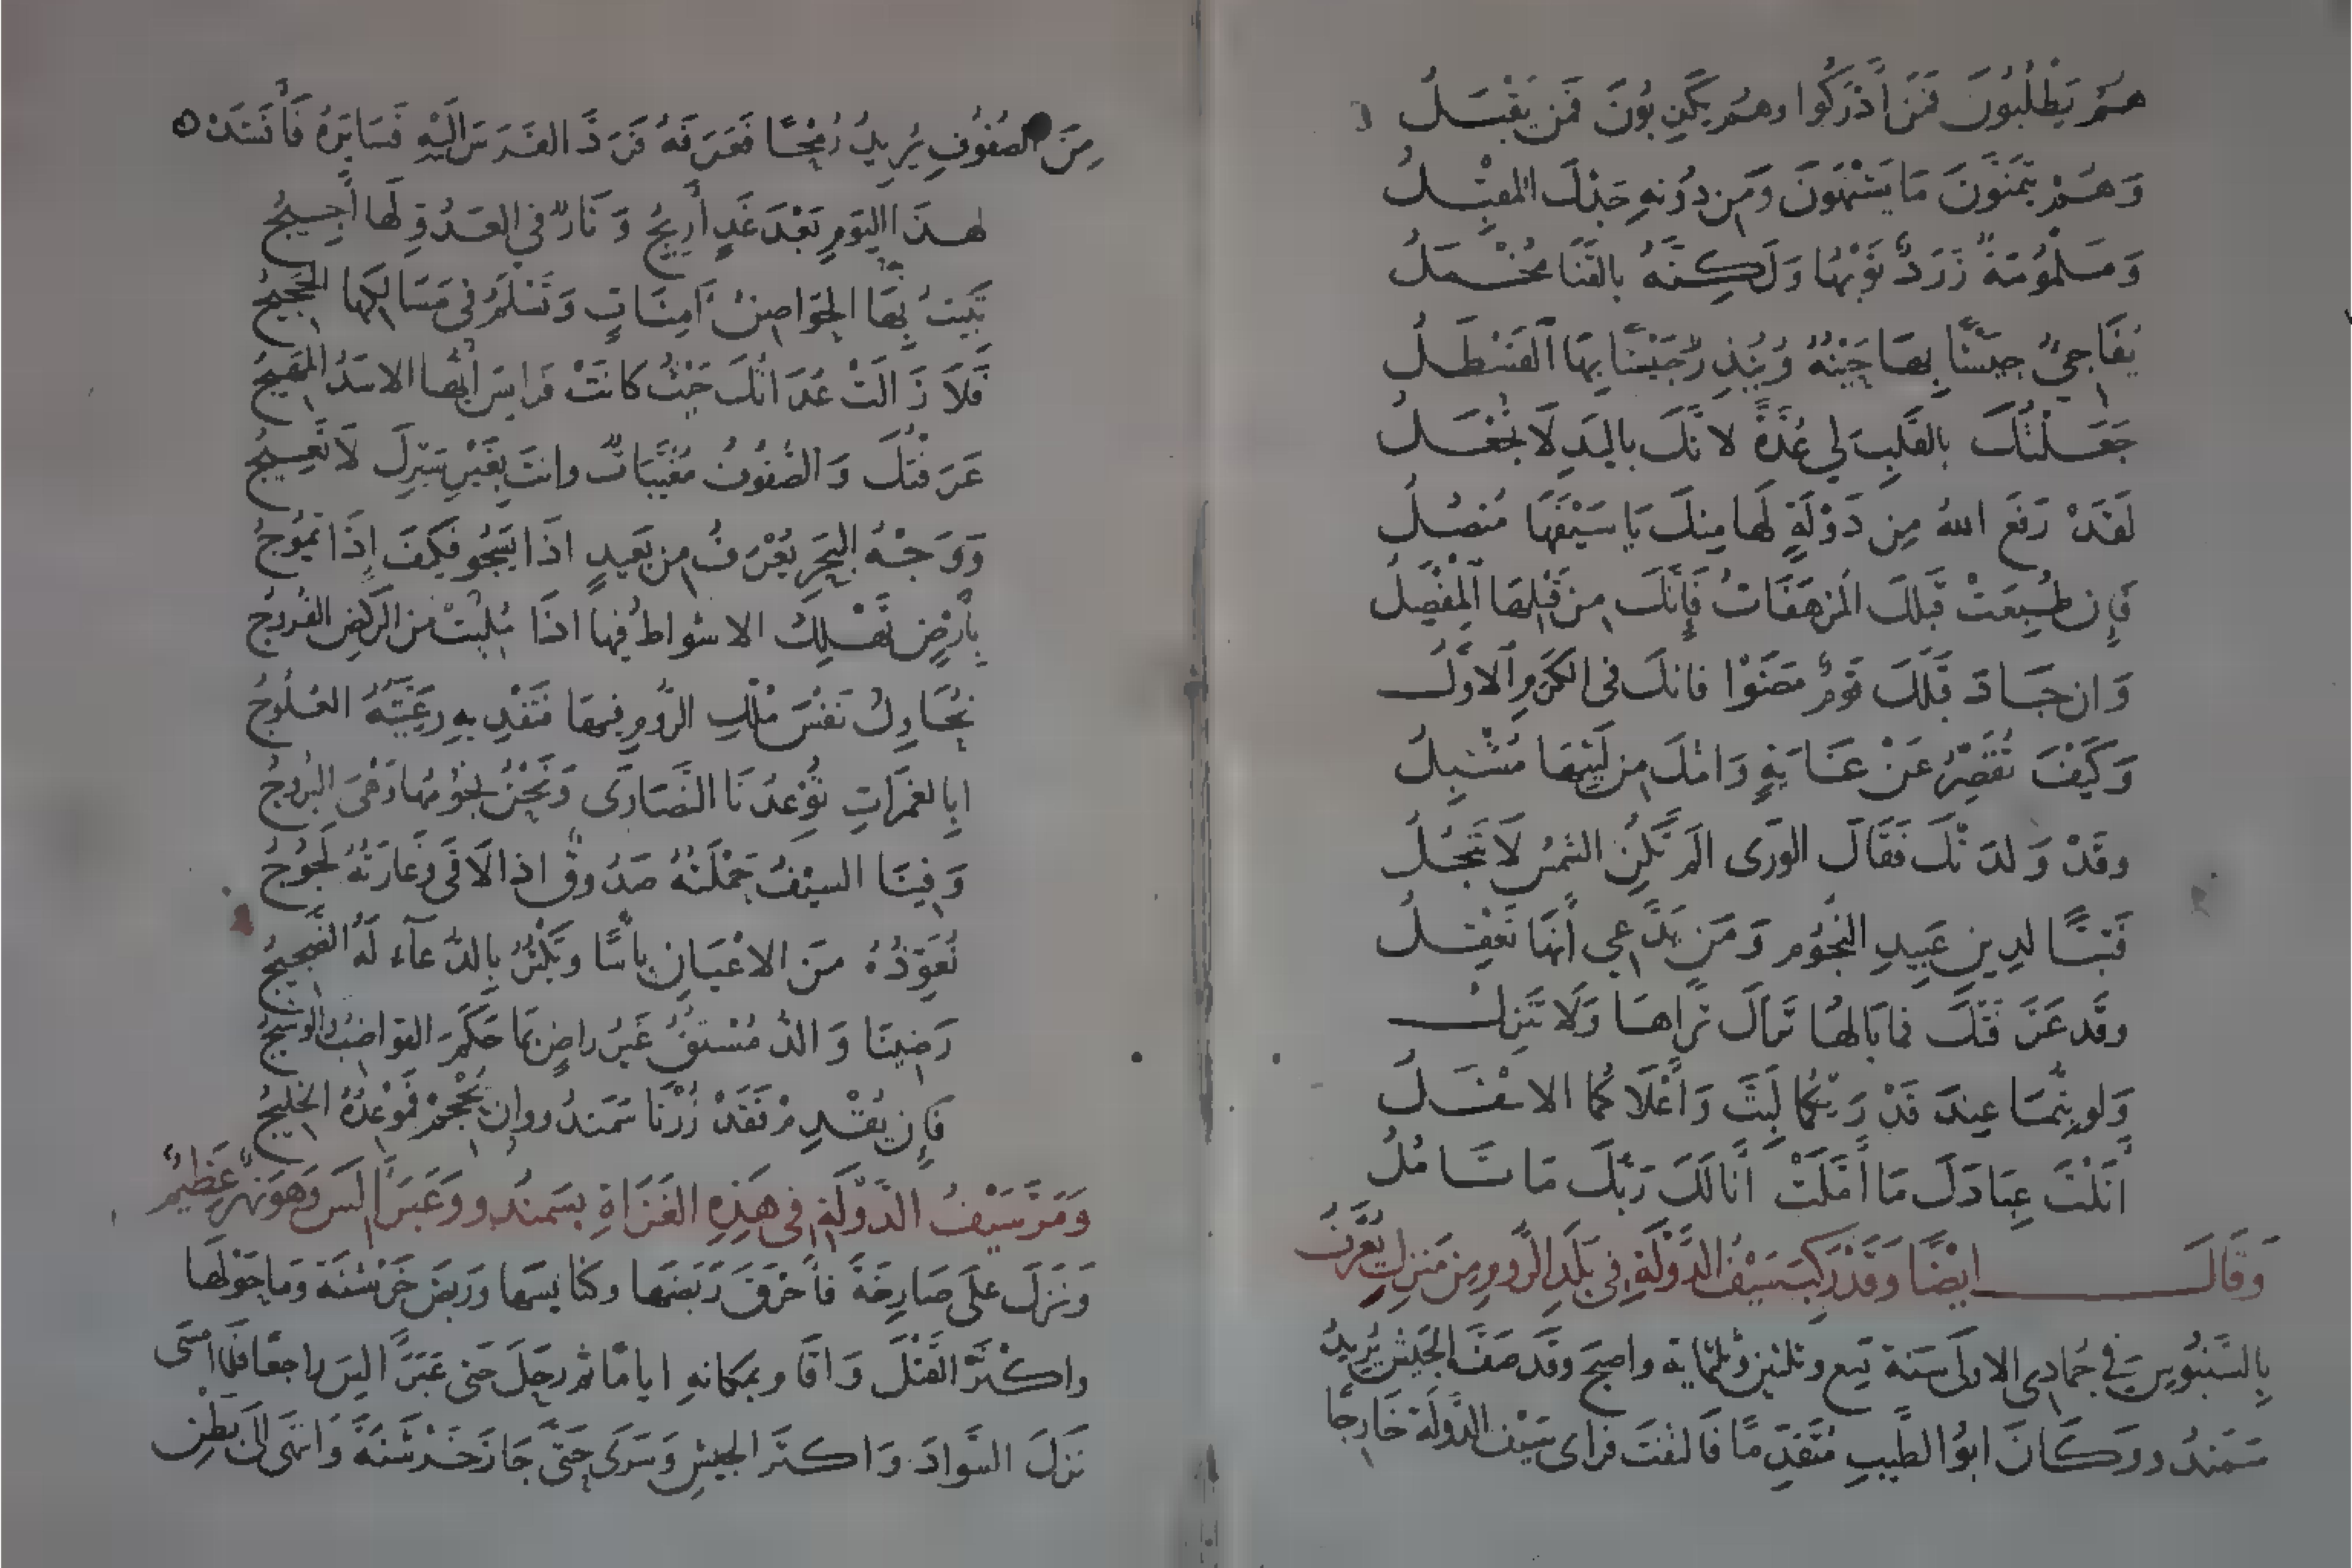 هُمُ يَطْلُبُونَ فَمَنْ أَدْرَكُوا وهُمْ يَكْذِبُونَ فَمَن يَقْبَلُ
وَهُمْ يَتَمَنَّونَ مَا يَشْتَهُونَ وَمِن دُونِهِ جَدُّكَ المقبِلُ
وَمَلْمُومَةٌ زَرَدٌ ثَوْبُهَا وَلَكِنَّهُ بالقَنَا مُخْمَلُ
يُفَاجِئُ جيشًا بِهَا حَيْنُهُ وَيُنْذِرُ جَيْشًا بِهَا القَسْطَلُ
جَعَلْتُكَ بالقَلبِ لي عُدَّةً لانَّكَ باليَدِ لَا تُجْعَلُ
لَقَدْ رَفَعَ اللهُ مِن دَوْلَةٍ لَهَا مِنكَ يَا سَيْفَهَا مُنصُلُ
فَإِن طُبِعَتْ قَبلَكَ المُرْهَفَاتُ فَإِنَّكَ مِن قَبْلِهَا المِفْصَلُ
وَان جَادَ قَبلَكَ قَومٌ مَضَوْا فانكَ في الكَرَمِ الاوَّلُ
وَكَيْفَ تُقَصِّرُ عَنْ غَايَةٍ وَامُّكَ مِن لَيثِهَا مُشْبِلُ
وقَدْ وَلَدَتْكَ فَقَالَ الوَرَى الَم تَكُنِ الشمسُ لَا تُنجَلُ
فَتَبًّا لدِينِ عَبِيدِ النُّجُومِ وَمَن يَدَّعِي أَنهَا تَعْقِلُ
وقَد عَرَفَتْكَ فمَا بَالُهَا تَرَاكَ تَرَاهَا وَلَا تَنزِلُ
وَلو بِتُّمَا عِندَ قَدْرَيكُمَا لَبِتَّ وَأَعْلَاكُمَا الاسْفَلُ
أَنَلْتَ عِبَادَكَ مَا أَمَّلَتْ أَنَالَكَ رَبُّكَ مَا تَامُلُ
وَقَالَ ايْضًا وَقَدْ رَكِبَ سَيْفُ الدَّوْلَةِ فِي بَلَدِ الرُّومِ مِن مَنزِلٍ يُعْرَفُ
بِالسَّنْبُوسِ في جُمَادى الاولَى سَنَة تسع وثلثين وثلثماية واصبَح وقَد صَفَّ الجَيْشَ يُرِيدُ
سَمَنْدُو وكَانَ ابُو الطَّيبِ مُتَقَدِّمًا فَالتَفَتَ فرَاى سَيْفَ الدَّولَة خَارِجًا
مِنَ الصُفُوفِ يُرِيدُ رُمْحًا فَعَرَفَهُ فَرَدَّ الفَرَسَ الَيْهِ فَسَايَرَهُ فَأَنشَدَهُ
لهذَا اليَومِ بَعْدَ غَدٍ أَرِيجُ وَنَارٌ في العَدُوِّ لَهَا أَجِيجُ
تَبِيتُ بِهَا الحَوَاصِنُ آمِنَاتٍ وَتَسْلَمُ في مَسَالِكِهَا الحَجِيجُ
فَلَا زَالَتْ عُدَاتُكَ حَيْثُ كانَتْ فَرَايسَ أَيُّهَا الاسَدُ المَهِيجُ
عَرَفْتُكَ وَالصُّفُوفُ مُعَبَّيَاتٌ وانتَ بِغَيْرِ سَيْرِكَ لَا تَعِيجُ
وَوَجْهُ البَحْرِ يُعْرَفُ مِن بَعِيدٍ اذَا يَسْجُو فَكَيفَ إِذَا يَمُوجُ
بِأَرْضٍ تَهْلِكُ الاشوَاطُ فيها اذَا مُلِئَتْ مِن الرَّكْضِ الفُرُوجُ
تُحَاوِلُ نَفْسَ مَلْكِ الرُّومِ فيهَا فَتَفْدِيهِ رَعِيَّتُهُ العُلُوجُ
ابِالغَمَرَاتِ تُوعِدُنَا النَّصَارَى وَنَحْنُ نُجُومُهَا وَهْيَ البُرُوجُ
وَفِينَا السيْفُ حَمْلَتُهُ صَدُوقٌ اذا لَاقَى وَغَارَتُهُ لَجُوجُ
نُعَوِّذُهُ مِنَ الاعْيَانِ بأْسًا ويَكْثُرُ بِالدُّعَآءِ لَهُ الضَّجِيجُ
رَضِينَا وَالدُّمُسْتُقُ غَيْرُ رَاضٍ بمَا حَكَمَ القَوَاضِبُ والوَشِيجُ
فَإِن يُقْدِمْ فَقَدْ زُرْنَا سَمَندُو وإِن يُحْجِمْ فَمَوْعِدُهُ الخَلِيجُ
وَمَرَّ سَيْفُ الدَّوْلَةِ في هَذِهِ الغَزَاةِ بسَمَندُو وَعَبَرَ الَسَ وَهوَ نَهرٌ عَظِيمٌ
وَنَزَلَ عَلَى صَارِخَةَ فأَحْرَقَ رَبَضَهَا وكنايسَهَا ورَبَضَ خَرْشَنَةَ وَمَا حَوْلَهَا
واكْثَرَ القَتْلَ وَاقَامَ بمَكانهِ ايامًا ثم رحَلَ حَتى عَبَرَ الَسَ راجعًا فَلَمَّا امْسَى
نَزَلَ السَّوادَ وَاكثَرَ الجيشِ وَسَرَى حَتَّى جَازَ خَرْشَنَةَ وَانتهَى الَى بَطْنِ